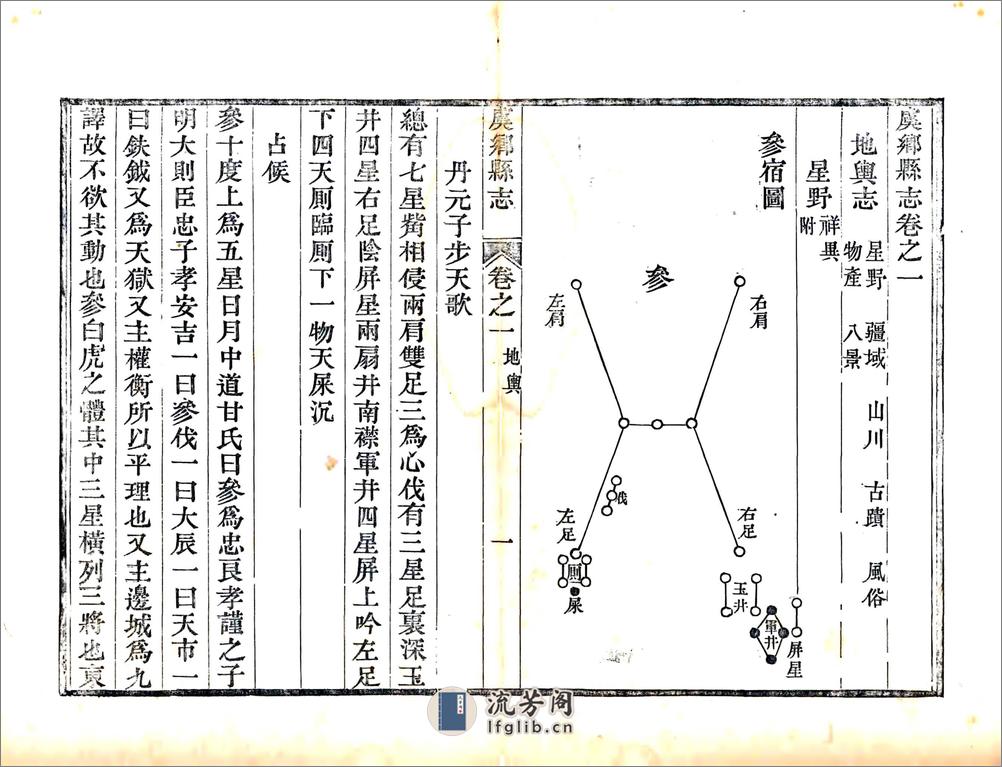 虞鄉縣志卷之一
地輿志 星野 疆域 山川 古蹟 風俗
物產 八景
星野 祥異附
參宿圖
參
右肩
左肩
伐
右足
左足
玉井
軍井
屏星
厠
屎
虞鄉縣志 卷之一 地輿 一
丹元子步天歌
總有七星觜相侵兩肩雙足三爲心伐有三星足裏深玉
井四星右足陰屏星兩扇井南襟軍井四星屏上吟左足
下四天厠臨厠下一物天屎沉
占候
參十度上爲五星日月中道甘氏曰參爲忠良孝謹之子
明大則臣忠子孝安吉一曰參伐一曰大辰一曰天市一
曰鈇鉞又爲天獄又主權衡所以平理也又主邊城爲九
譯故不欲其動也參白虎之體其中三星橫列三將也東
流芳阁
lfglib.cn